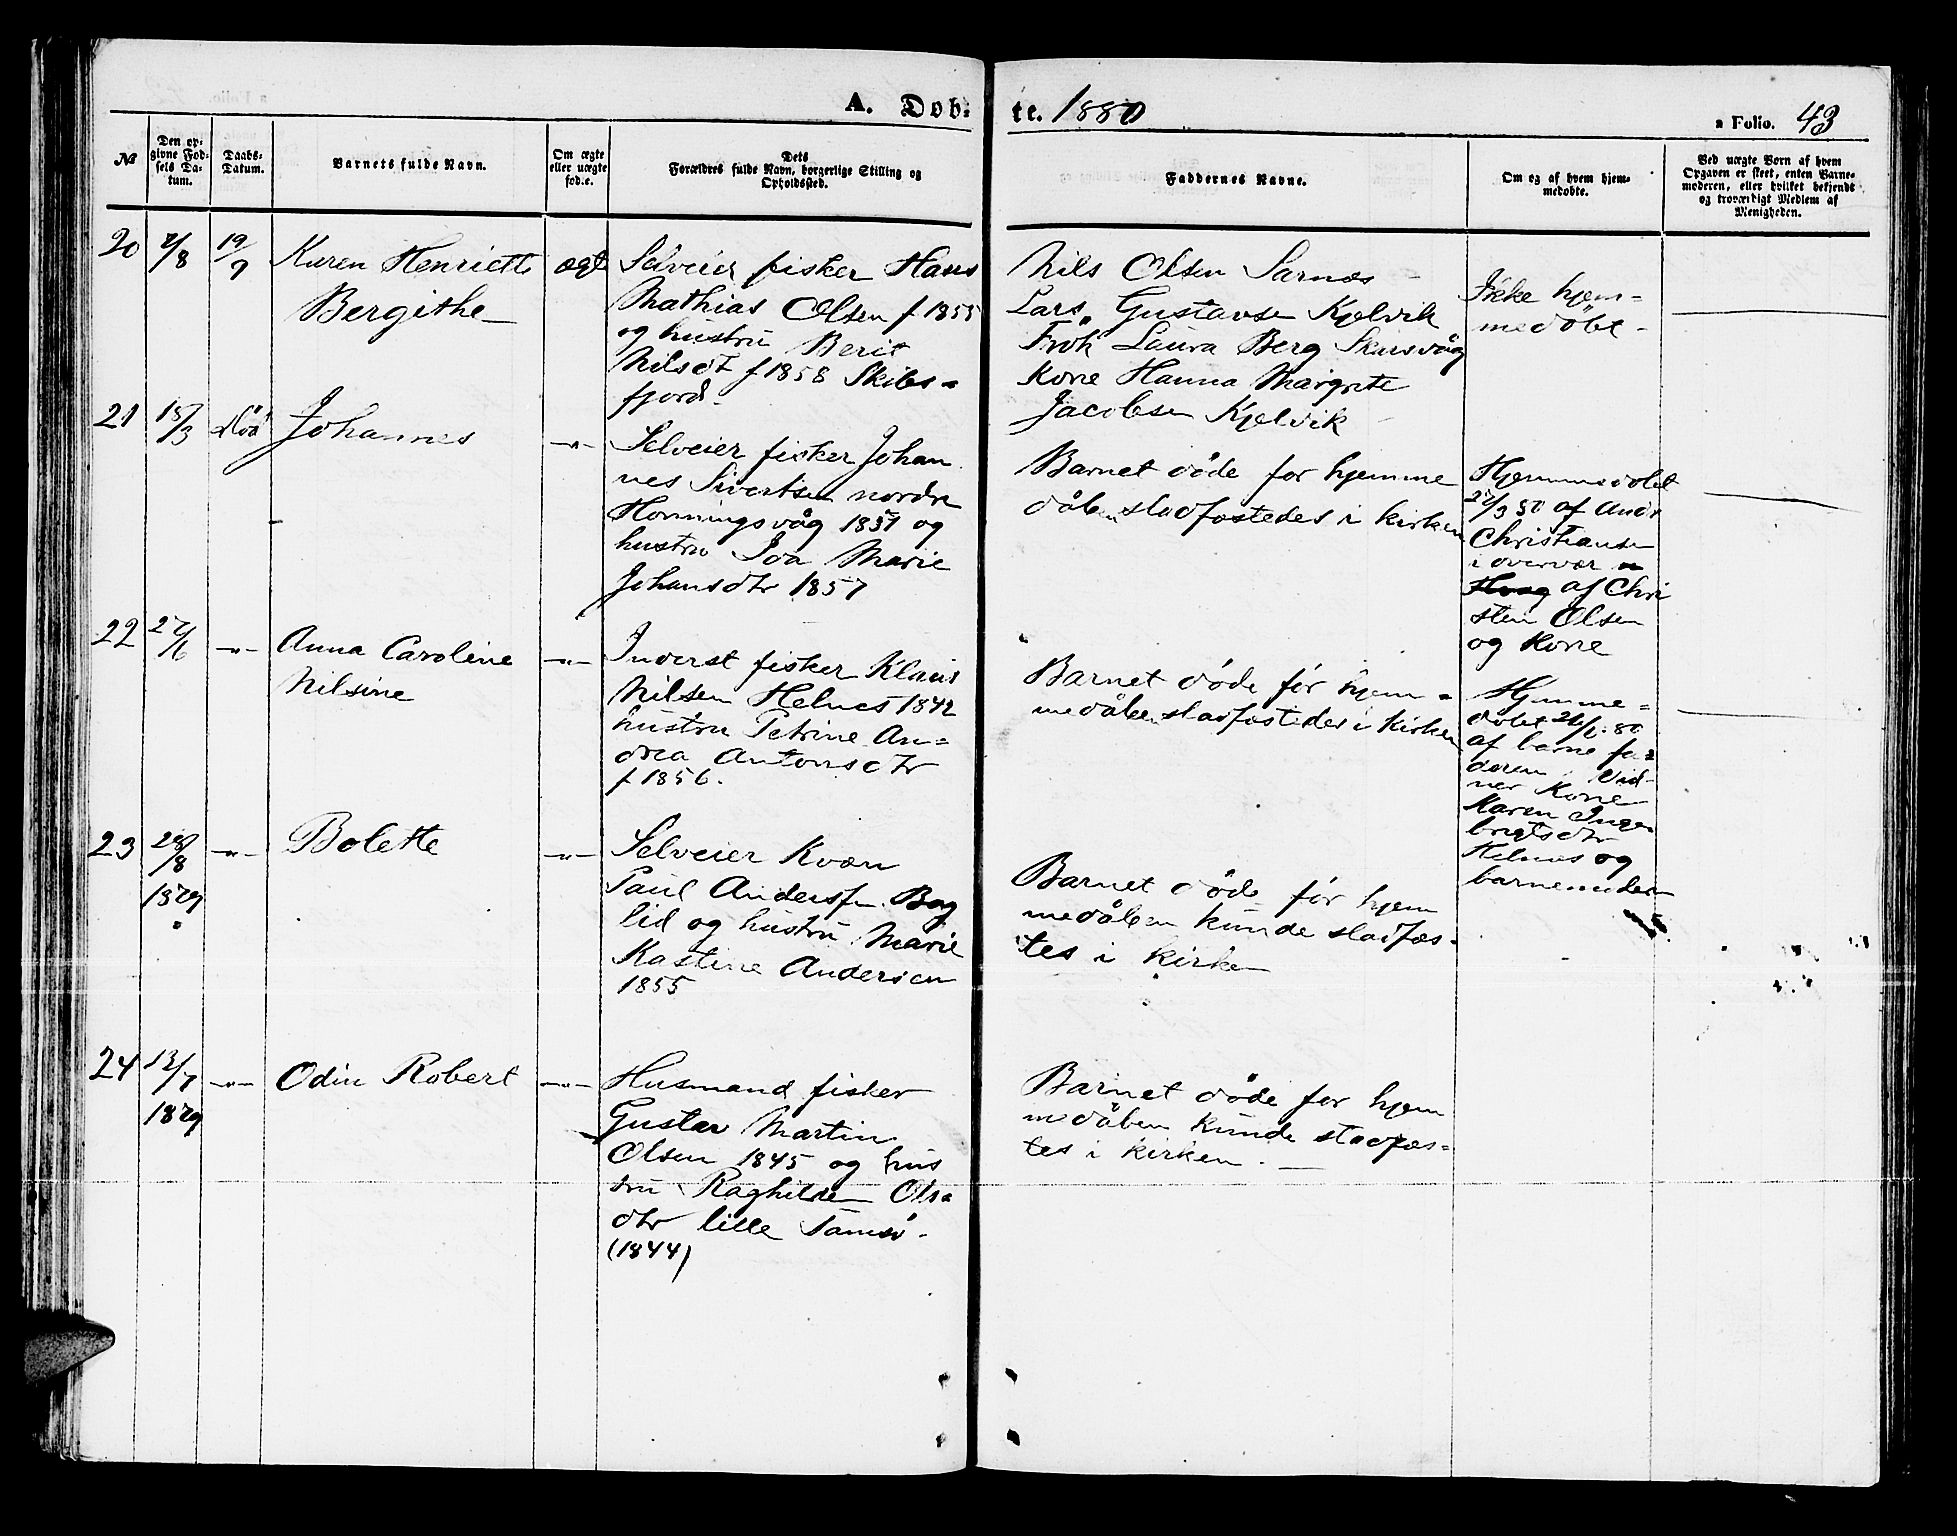 A. Døb=
te. 1880
a Folio. 43
№
Den op-
givne Fød-
sels Da-
tum.
Daabs-
Datum.
Barnets fulde Navn.
Om ægte
eller uægte
født.
Dets
Forældres fulde Navn, borgerlige Stilling og
Opholdssted.
Faddernes Navne.
Om og af hvem hjem-
medøbte.
Ved uægte Børn af hvem
Opgaven er skeet, enten Barne-
moderen, eller hvilket bekjendt
og troværdigt Medlem af
Menigheden.
20
2/8
19/9
Karen Henriette
Bergithe
ægt
Selveier fisker Hans
Mathias Olsen f 1855
og hustru Berit
Nilsdt f 1858 Skibs-
fjord.
Nils Olsen Sarnæs
Lars Gustavsen Kjelvik
Frök Laura Berg Skarsvåg
Kone Hanna Margrete
Jacobsen Kjelvik
Ikke hjem-
medöbt
21
18/3
död
Johannes
-"-
Selveier fisker Johan
nes Sivertsen nordre
Honningsvåg 1851 og
hustru Ida Marie
Johansdtr 1857
Barnet döde för hjemme
dåben stadfæstedes i kirken
Hjemmedöbt
27/3 80 af Andr
Christiansen
i overvær
af Chri
sten Olsen
og Kone
22
-"-
Anna Caroline
Nilsine
-"-
Inderst fisker Klaus
Nilsen Helnes 1842
hustru Petrine An=
drea Antonsdtr
f 1856.
Barnet döde för hjem=
medåben stadfæstedes i kirken
Hjemme=
döbt 26/6.80
af barne fa=
deren. Vid-
ner Kone
Karen Inge
brigtsdtr
Helnæs og
barnemoderen
23
28/8
1879
-"-
Bolette
-"-
Selveier Kvæn
Paul Andersen. Bog
lid og hustru Marie
Kastine Andersen
1855
Barnet döde för hjem
medåben kunde stadfæs-
tes i kirken
24
12/7
1879
-"-
Odin Robert
-"-
Husmand fisker
Gustav Martin
Olsen 1845 og hus
tru Raghilden Ols
dtr lille Tamsö.
(1844)
Barnet döde för hjem
medåben kunde stadfæs=
tes i kirken.